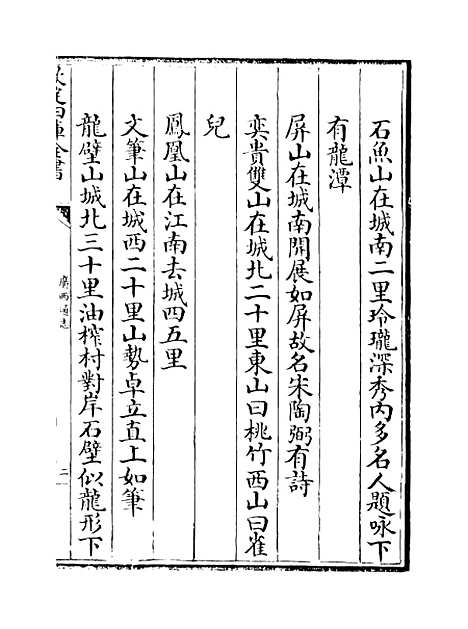 石魚山在城南二里玲瓏深秀內多名人題咏下
有龍潭
屏山在城南開展如屏故名宋陶弼有詩
奕貴雙山在城北二十里東山曰桃竹西山曰雀
兒
鳳凰山在江南去城四五里
文筆山在城西二十里山勢卓立直上如筆
龍壁山城北三十里油榨村對岸石壁似龍形下
欽定四庫全書
廣西通志
二